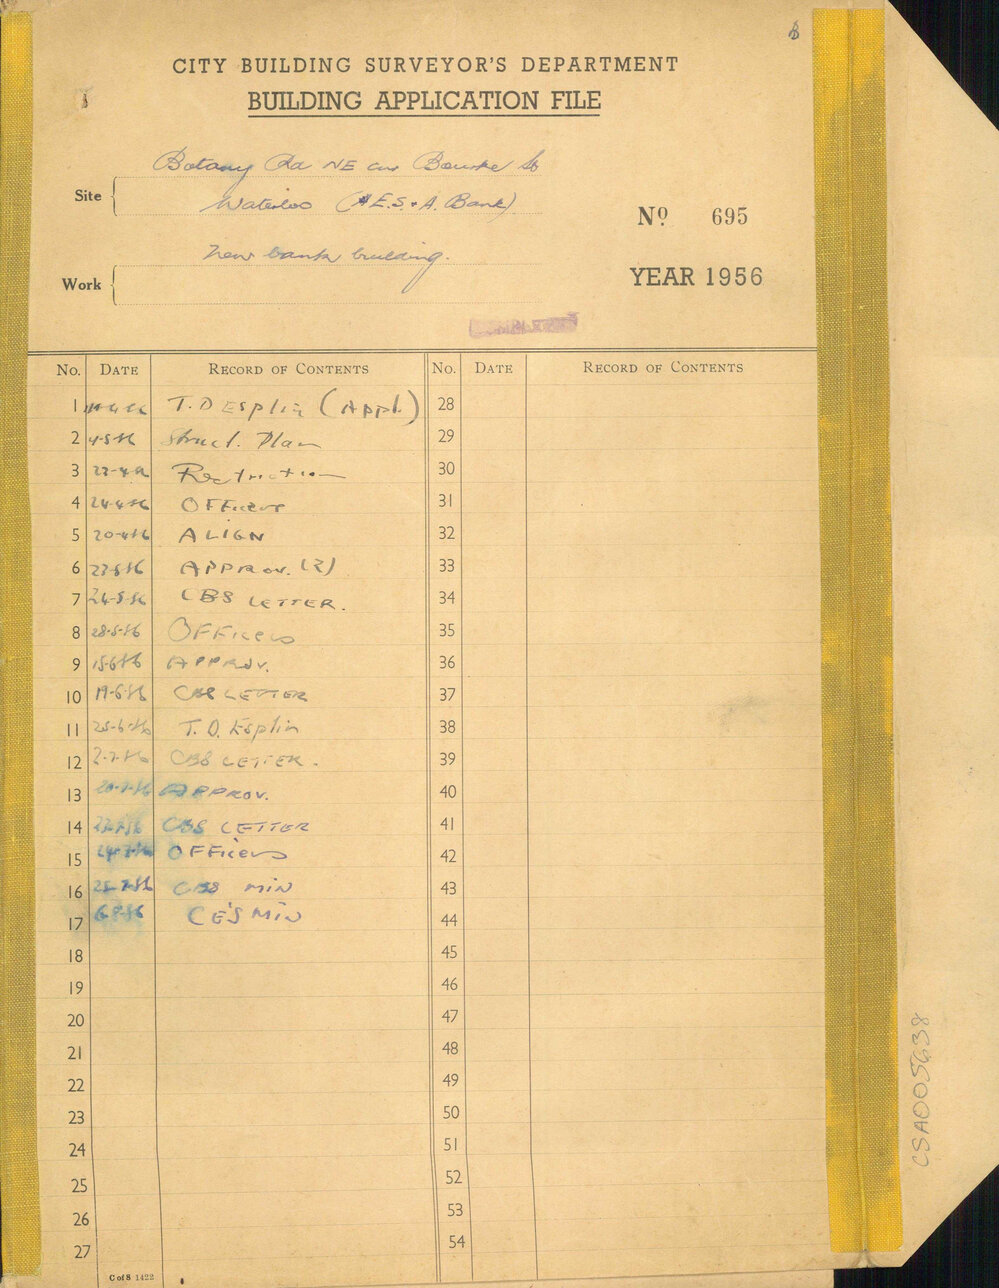 CITY BUILDING SURVEYOR'S DEPARTMENT
BUILDING APPLICATION FILE
Site
Botany Rd NE cnr Bourke St
Waterloo (E.S. & A. Bank)
Nº 695
Work
New bank building.
YEAR 1956
No. DATE RECORD OF CONTENTS No. DATE RECORD OF CONTENTS
1 T. D Esplin (Appl.) 28
2 4-5-56 Struct. Plan 29
3 Restriction 30
4 24-4-56 OFFicers 31
5 20-4-56 ALIGN 32
6 APPROV. (2) 33
7 24-5-56 CBS LETTER. 34
8 28-5-56 OFFicers 35
9 15-6-56 APPROV. 36
10 19-6-56 CBS LETTER 37
11 25-6-56 T. D. Esplin 38
12 2-7-56 CBS LETTER. 39
13 20-7-56 APPROV. 40
14 CBS LETTER 41
15 24-7-56 OFFicers 42
16 25-7-56 CBS MIN 43
17 CE'S MIN 44
18 45
19 46
20 47
21 48
22 49
23 50
24 51
25 52
26 53
27 54
C of S 1422
CSA005638